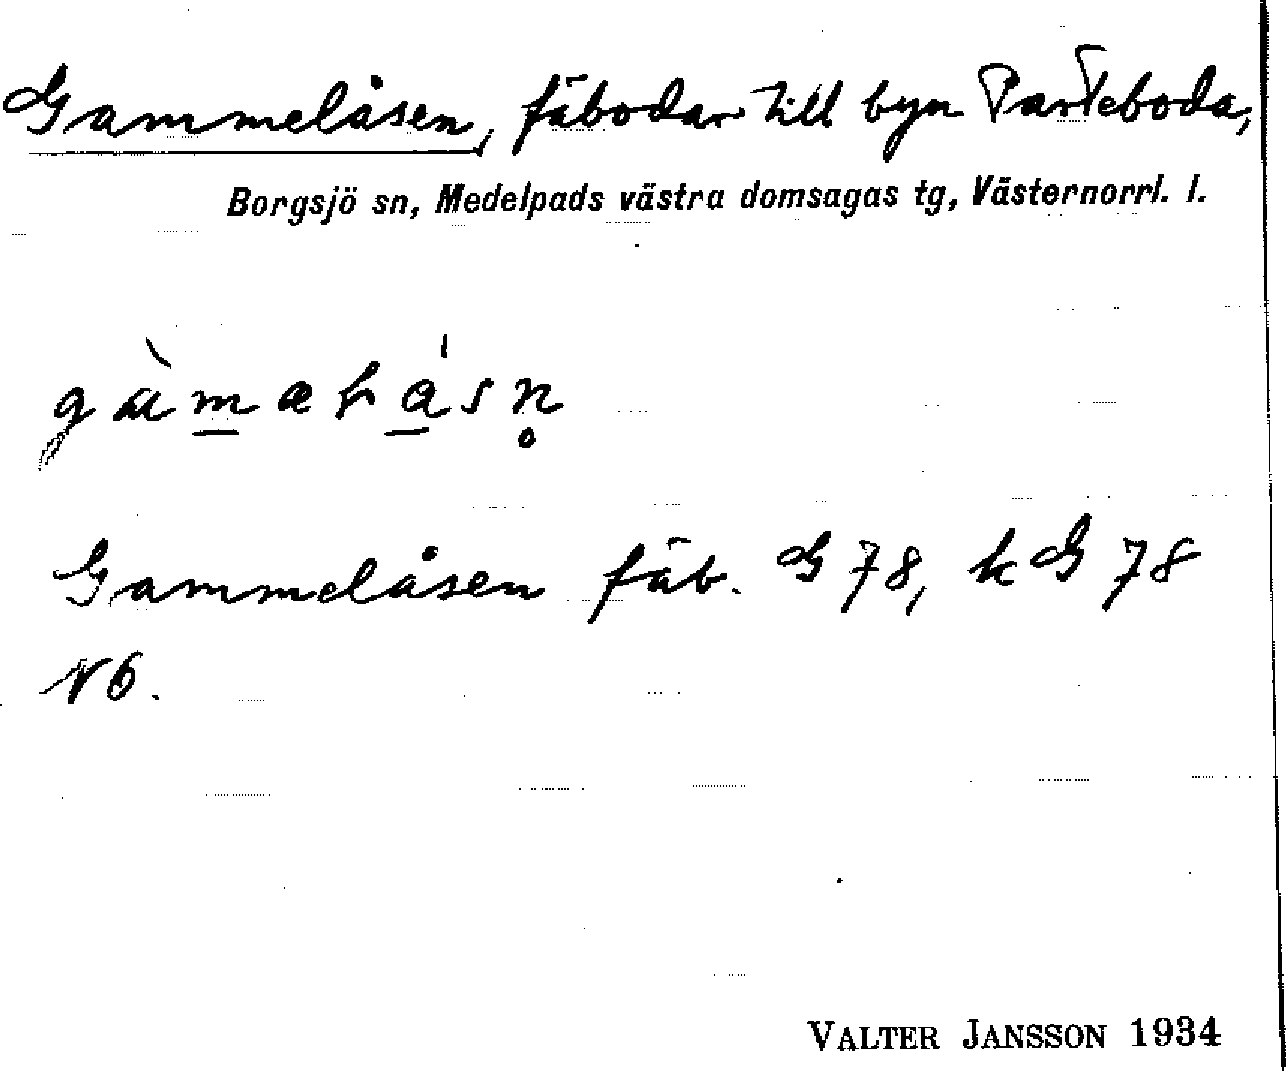 Gammelåsen, fäbodar till byn Parteboda,
Borgsjö sn, Medelpads västra domsagas tg, Västernorrl. l.
Gammelåsen fäb. G 78, kG 78
VALTER JANSSON 1934